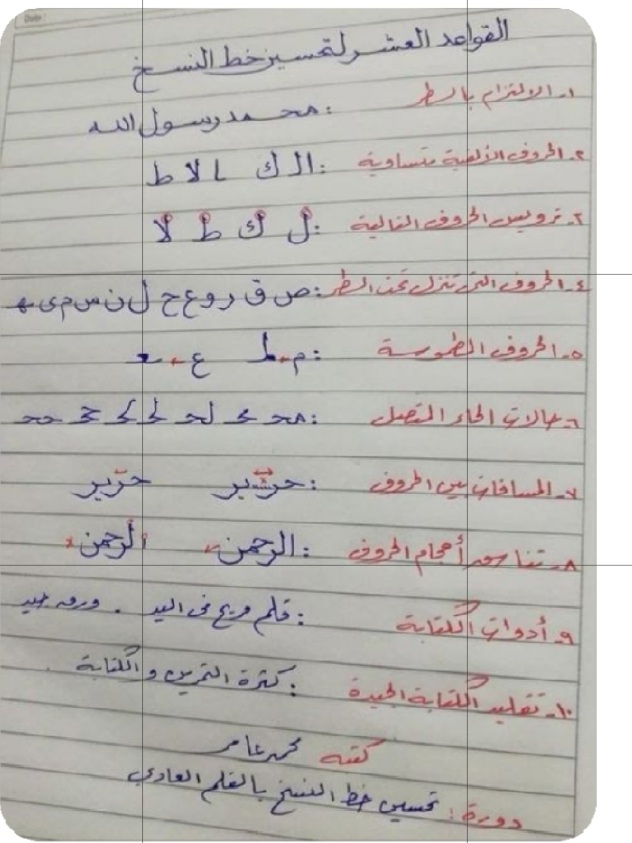 القواعد العشر لتحسين خط النسخ
١- الالتزام بالسطر : محمد رسول الله
٢- الحروف الألفية متساوية : ا ل ك ا لا ط
٣- ترويس الحروف التالية : ل ك ط لا
٤- الحروف التي تنزل تحت السطر : ص ق ر و ع ح ل ن س م ى ه
٥- الحروف المطموسة : م - ع -
٦- حالات الحاء المتصل :
٧- المسافات بين الحروف : حرير
٨- تناسق أحجام الحروف : الرحمن الرحمن
٩- أدوات الكتابة : قلم مريح فى اليد . ورق جيد
١٠- تقليد الكتابة الجيدة : كثرة التمرين والكتابة
كتبه محمد عامر
دورة : تحسين خط النسخ بالقلم العادي